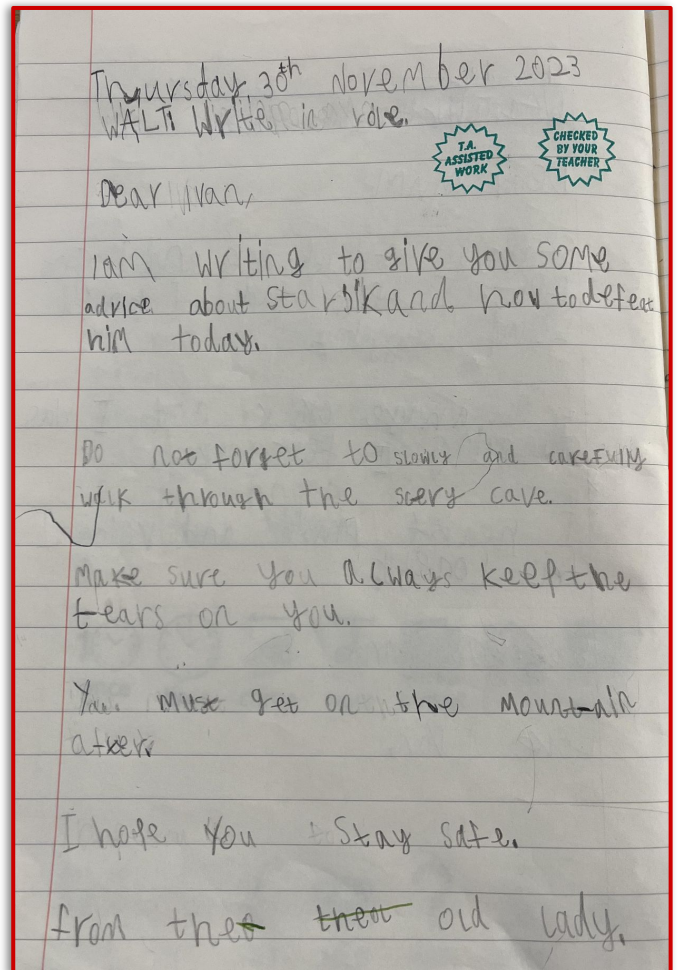 Thursday 30th November 2023
WALT: Write in role.
T.A.
ASSISTED
WORK
CHECKED
BY YOUR
TEACHER
Dear Ivan,
I am writing to give you some
advice about Starbik and how to defeat
him today.
Do not forget to slowly and carefully
walk through the scery cave.
Make sure you always keep the
tears on you.
You must get on the mountain
after.
I hope you stay safe.
from the old lady.